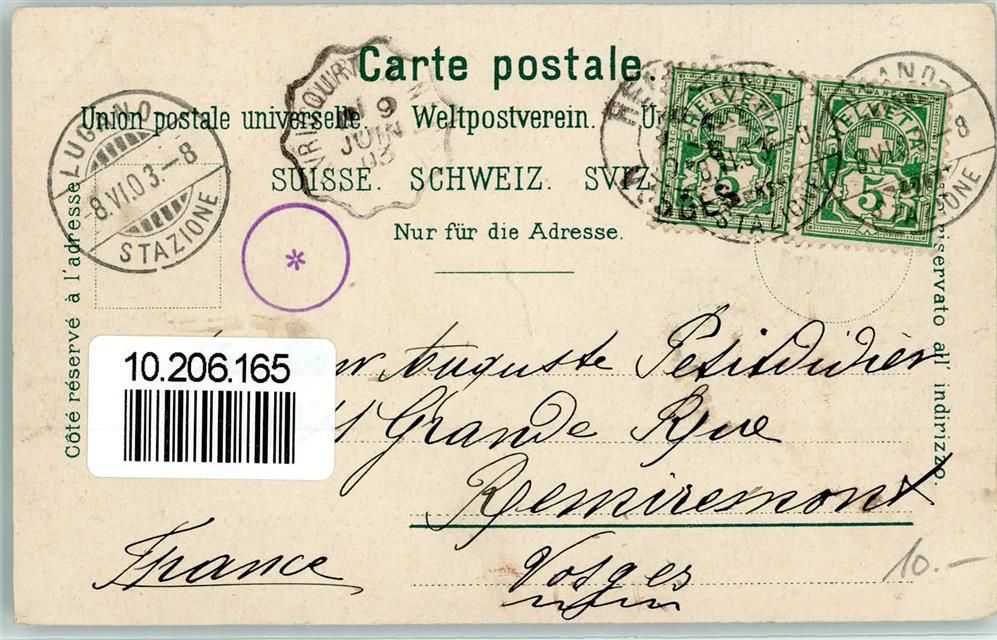 Carte postale.
Union postale universelle Weltpostverein.
SUISSE. SCHWEIZ.
Nur für die Adresse.
Côté réservé à l'adresse.
riservato all' indirizzo.
LUGANO
8.VI.03.–8
STAZIONE
9
JUIN
03
HELVETIA
HELVETIA
5
VOSGES
*
10.206.165
Auguste Petitdidier
Grande Rue
Remiremont
Vosges
France
10.–